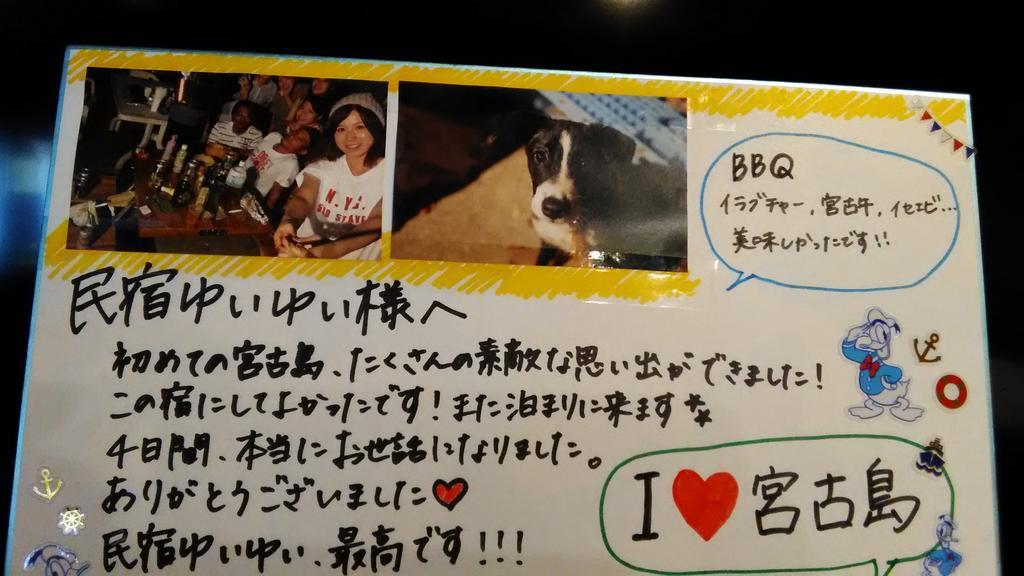 N.Y.
BBQ
イラブチャー, 宮古牛, イセエビ...
美味しかったです!!
民宿ゆいゆい様へ
初めての宮古島、たくさんの素敵な思い出ができました!
この宿にしてよかったです!また泊まりに来ます
4日間、本当にお世話になりました。
ありがとうございました♥
民宿ゆいゆい、最高です!!!
I ♥ 宮古島